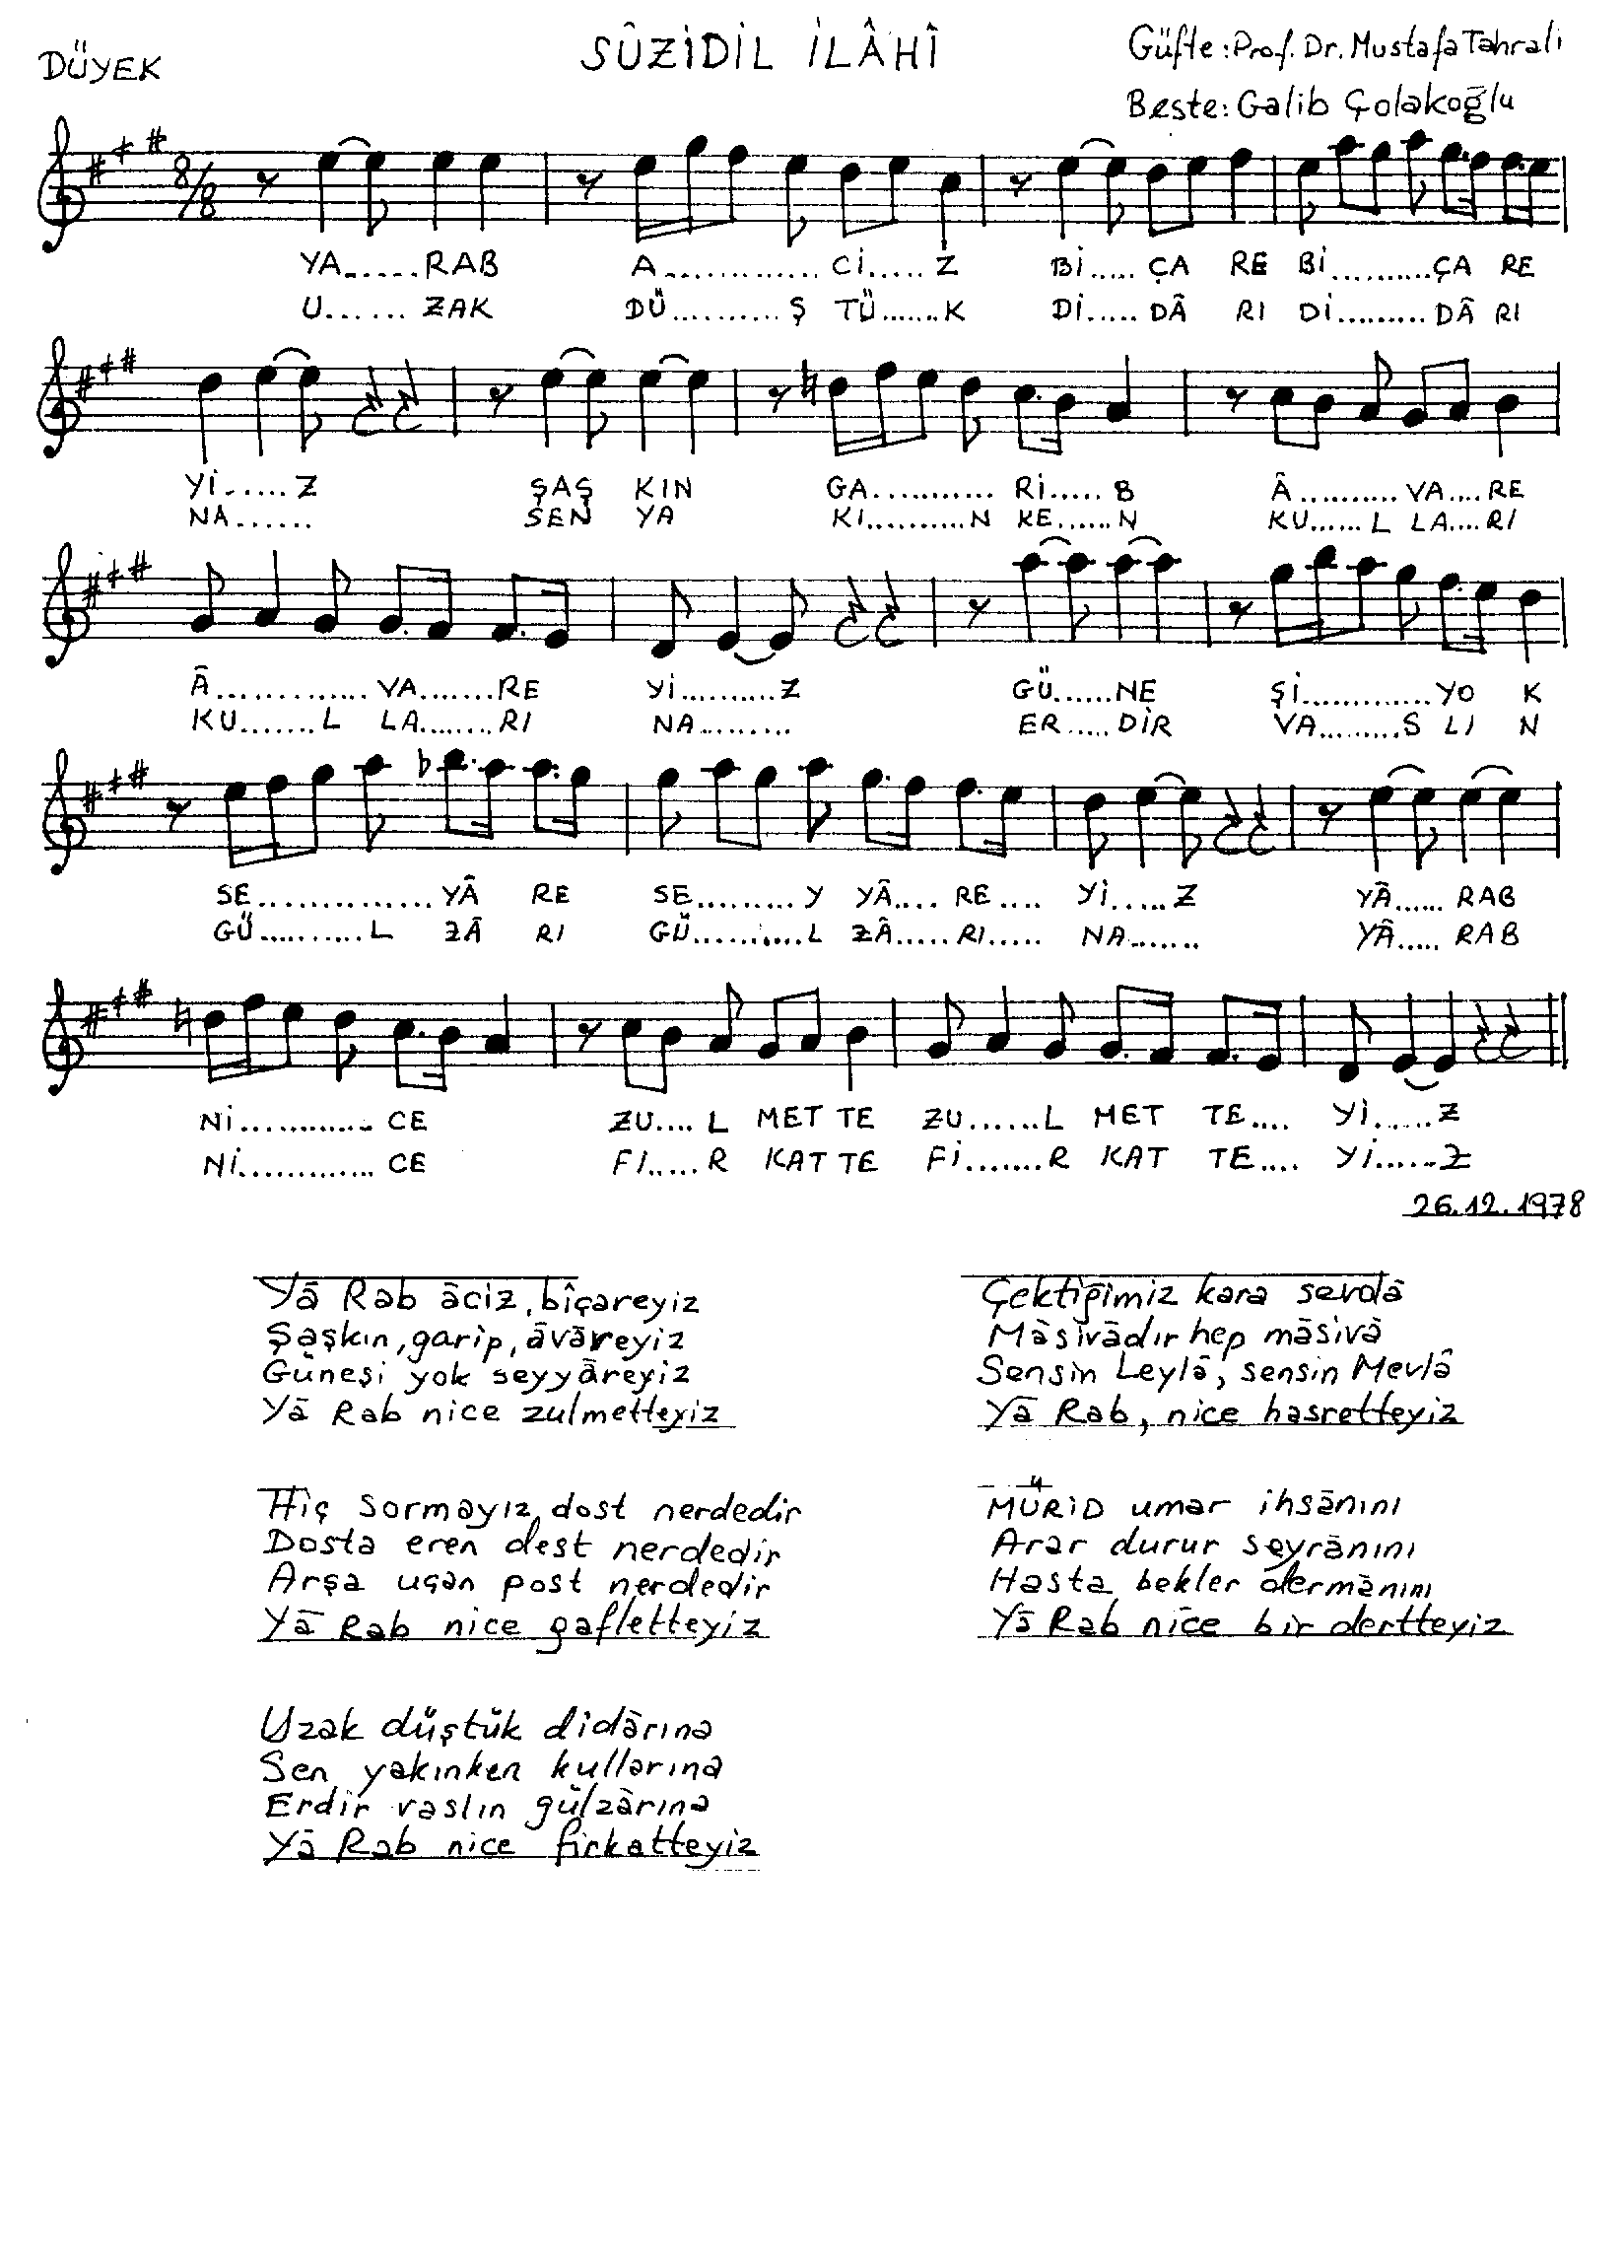 DÜYEK
SÛZİDİL İLÂHÎ
Güfte: Prof. Dr. Mustafa Tahralı
Beste: Galib Çolakoğlu
8/8
YA......RAB A.............Cİ.....Z Bİ.....ÇA RE Bİ..........ÇA RE
U......ZAK DÜ..........Ş TÜ.......K Dİ.....DÂ RI Dİ.........DÂ RI
Yİ......Z ŞAŞ KIN GA...........Rİ.....B Â..........VA....RE
NA...... SEN YA KI..........N KE......N KU......L LA....RI
Â.............VA.......RE Yİ..........Z GÜ......NE Şİ.............YO K
KU.......L LA.......RI NA......... ER.....DİR VA.........S LI N
SE..............YÂ RE SE.........Y YÂ....RE.... Yİ.....Z YÂ......RAB
GÜ..........L ZÂ RI GÜ..........L ZÂ.....RI..... NA....... YÂ.....RAB
Nİ............CE ZU....L MET TE ZU......L MET TE.... Yİ......Z
Nİ............CE FI.....R KAT TE Fİ.......R KAT TE.... Yİ......Z
26.12.1978
Yā Rab āciz, bîçareyiz
Şaşkın, garip, āvāreyiz
Güneşi yok seyyāreyiz
Yā Rab nice zulmetteyiz
Hiç sormayız dost nerdedir
Dosta eren dest nerdedir
Arşa uçan post nerdedir
Yā Rab nice gafletteyiz
Uzak düştük didārına
Sen yakınken kullarına
Erdir vaslın gülzārına
Yā Rab nice firkatteyiz
Çektiğimiz kara sevdā
Māsivādır hep māsivā
Sensin Leylā, sensin Mevlâ
Yā Rab, nice hasretteyiz
MÜRİD umar ihsānını
Arar durur seyrānını
Hasta bekler dermānını
Yā Rab nice bir dertteyiz